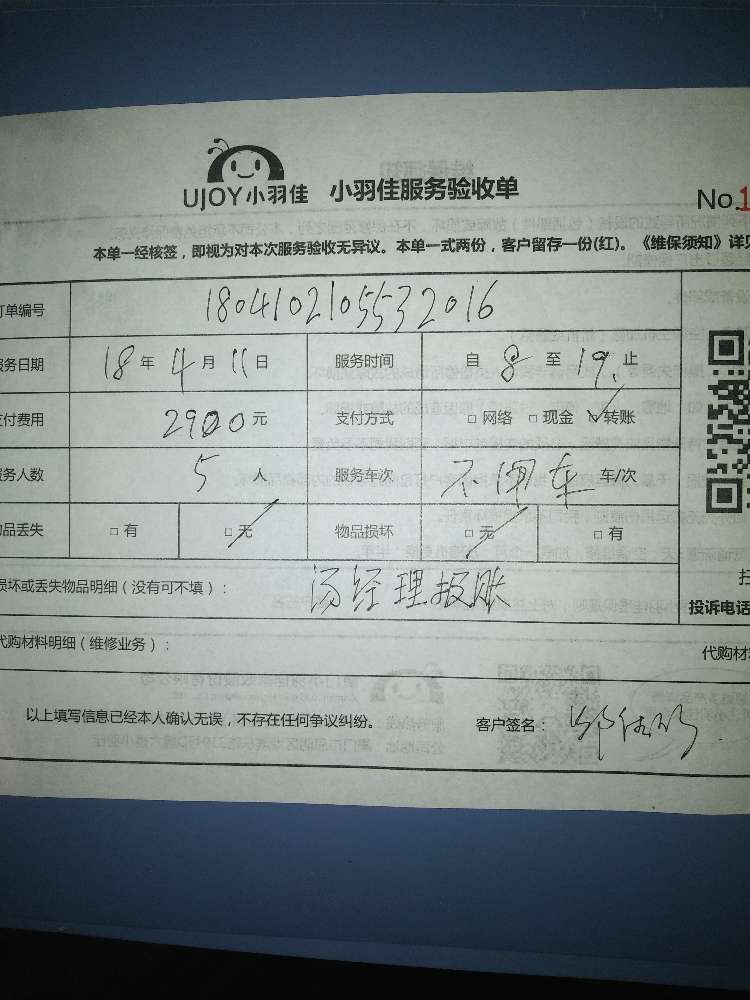 UJOY小羽佳 小羽佳服务验收单
No.1
本单一经核签，即视为对本次服务验收无异议。本单一式两份，客户留存一份(红)。《维保须知》详见
订单编号 1804102105532016
服务日期 18 年 4 月 11 日 服务时间 自 8 至 19 止
支付费用 2900 元 支付方式 □ 网络 □ 现金 ☑ 转账
服务人数 5 人 服务车次 不用车 车/次
物品丢失 □ 有 □ 无 物品损坏 □ 无 □ 有
损坏或丢失物品明细（没有可不填）： 汤经理报账
扫
投诉电话
代购材料明细（维修业务）： 代购材料
以上填写信息已经本人确认无误，不存在任何争议纠纷。 客户签名：